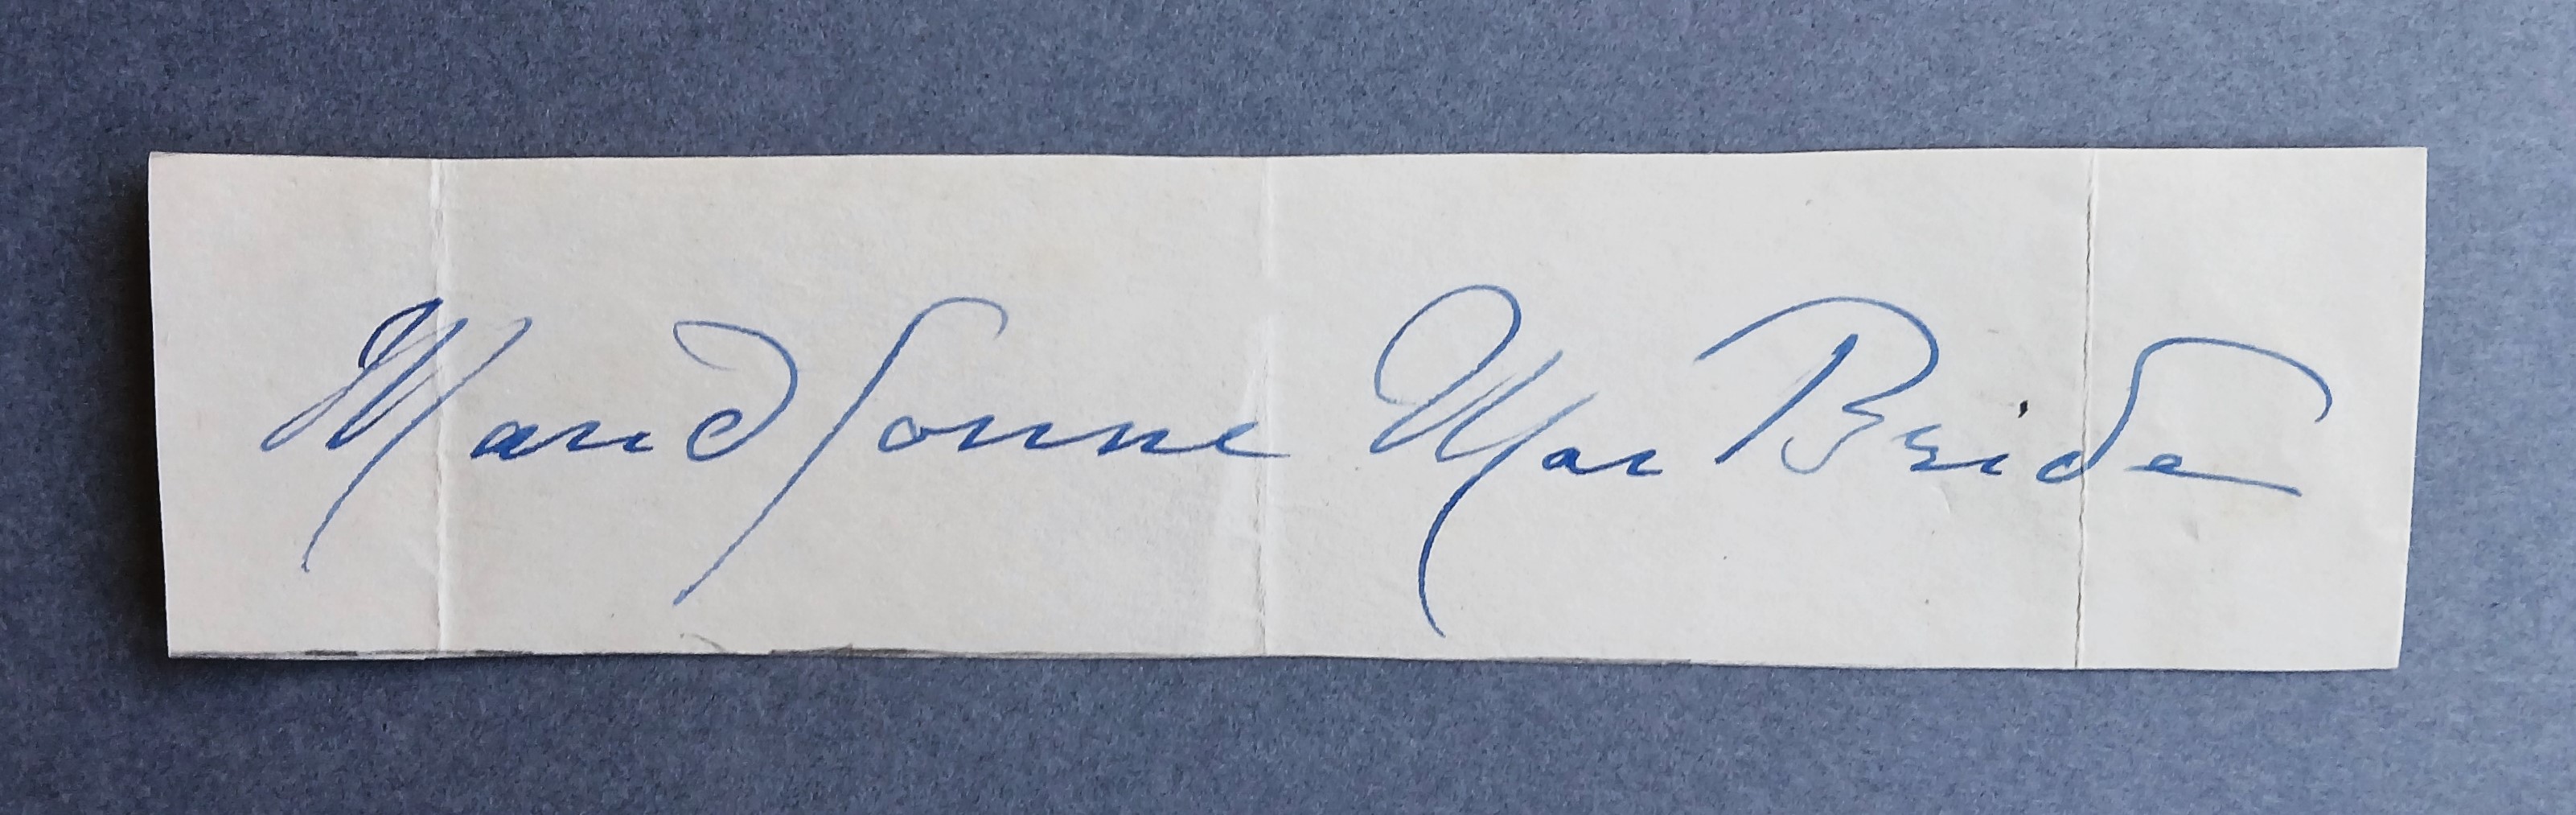 Maud Gonne MacBride